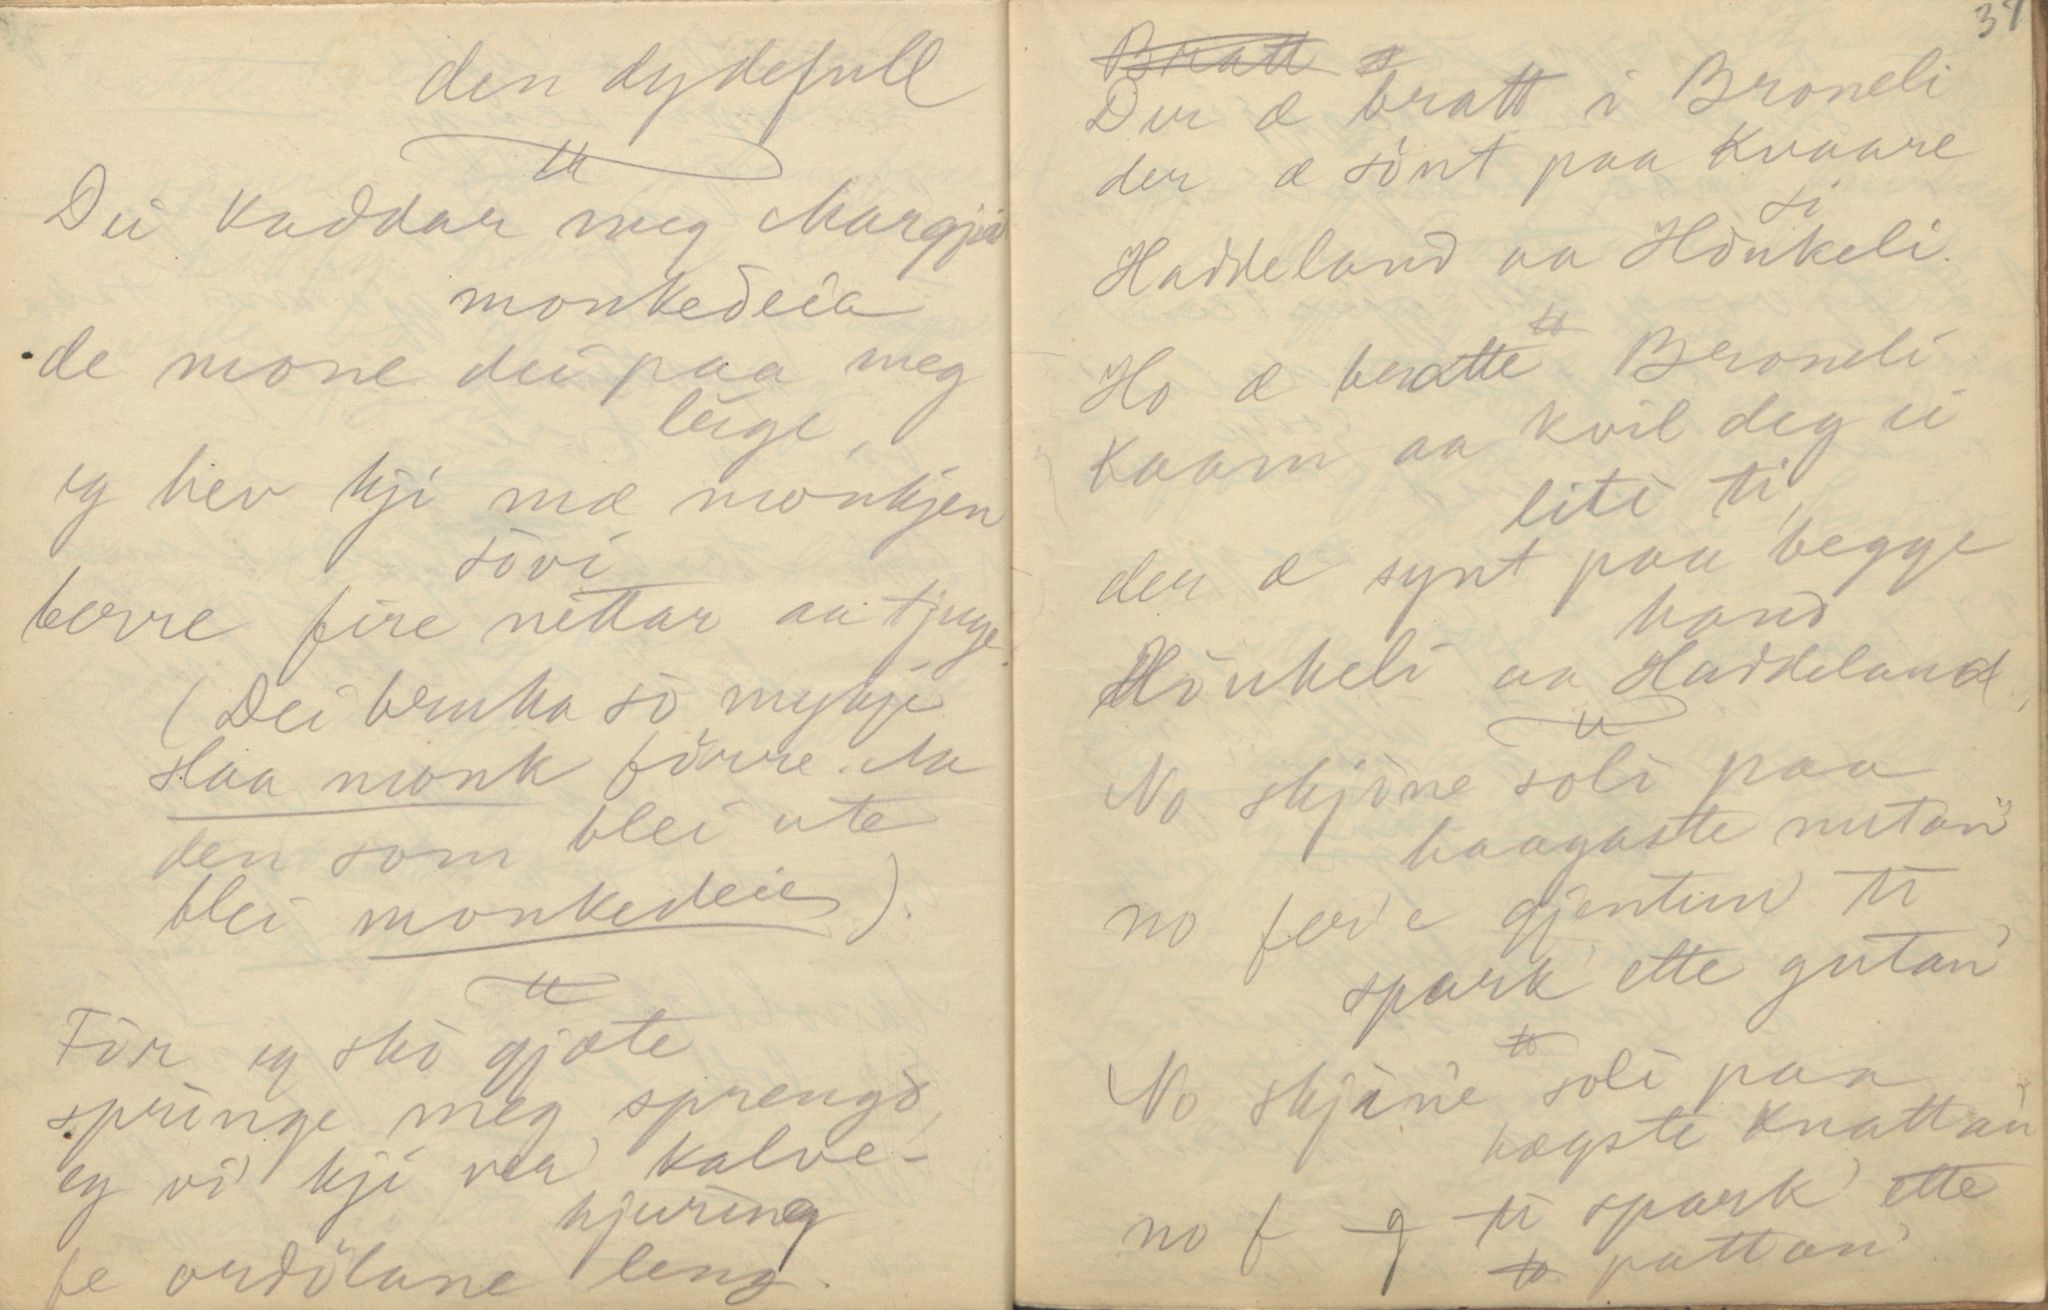 den dydefull
Dei kaddar meg Margjit
monkedeia
de mone dei paa meg
leige,
eg hev kji mæ monkjen
sòvi
berre fire nettar aa tjuge.
(Dei bruka so mykje
slaa monk fòrre. Aa
den som blei ute
blei monkedeie).
Fòr eg skò gjæte
springe meg sprengd,
eg vi' kji vera' kalve-
hjuring
fe ordòlane leng.
37
Bratt æ
Der æ bratt i Broneli
der æ sònt paa Kvaare
si
Haddeland aa Hònkeli.
Ho æ bratte Broneli
Kaam aa kvil deg ei
liti ti,
der æ synt paa begge
hand
Hònkeli aa Haddeland,
No skjine soli paa
haagaste nutan'
no fer'e gjentun' ti
spark' ette gutan'
No skjine' soli paa
hægste Knattan'
no f g ti spark' ette
pattan'